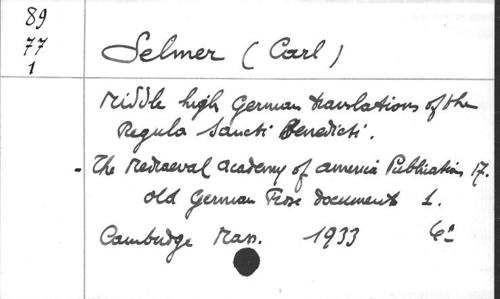 89
77
1
Selmer (Carl)
Middle high German translations of the
Regula Sancti Benedicti.
- The Mediaeval academy of america Publication 17.
old German Prose documents 1.
Cambridge Mass. 1933